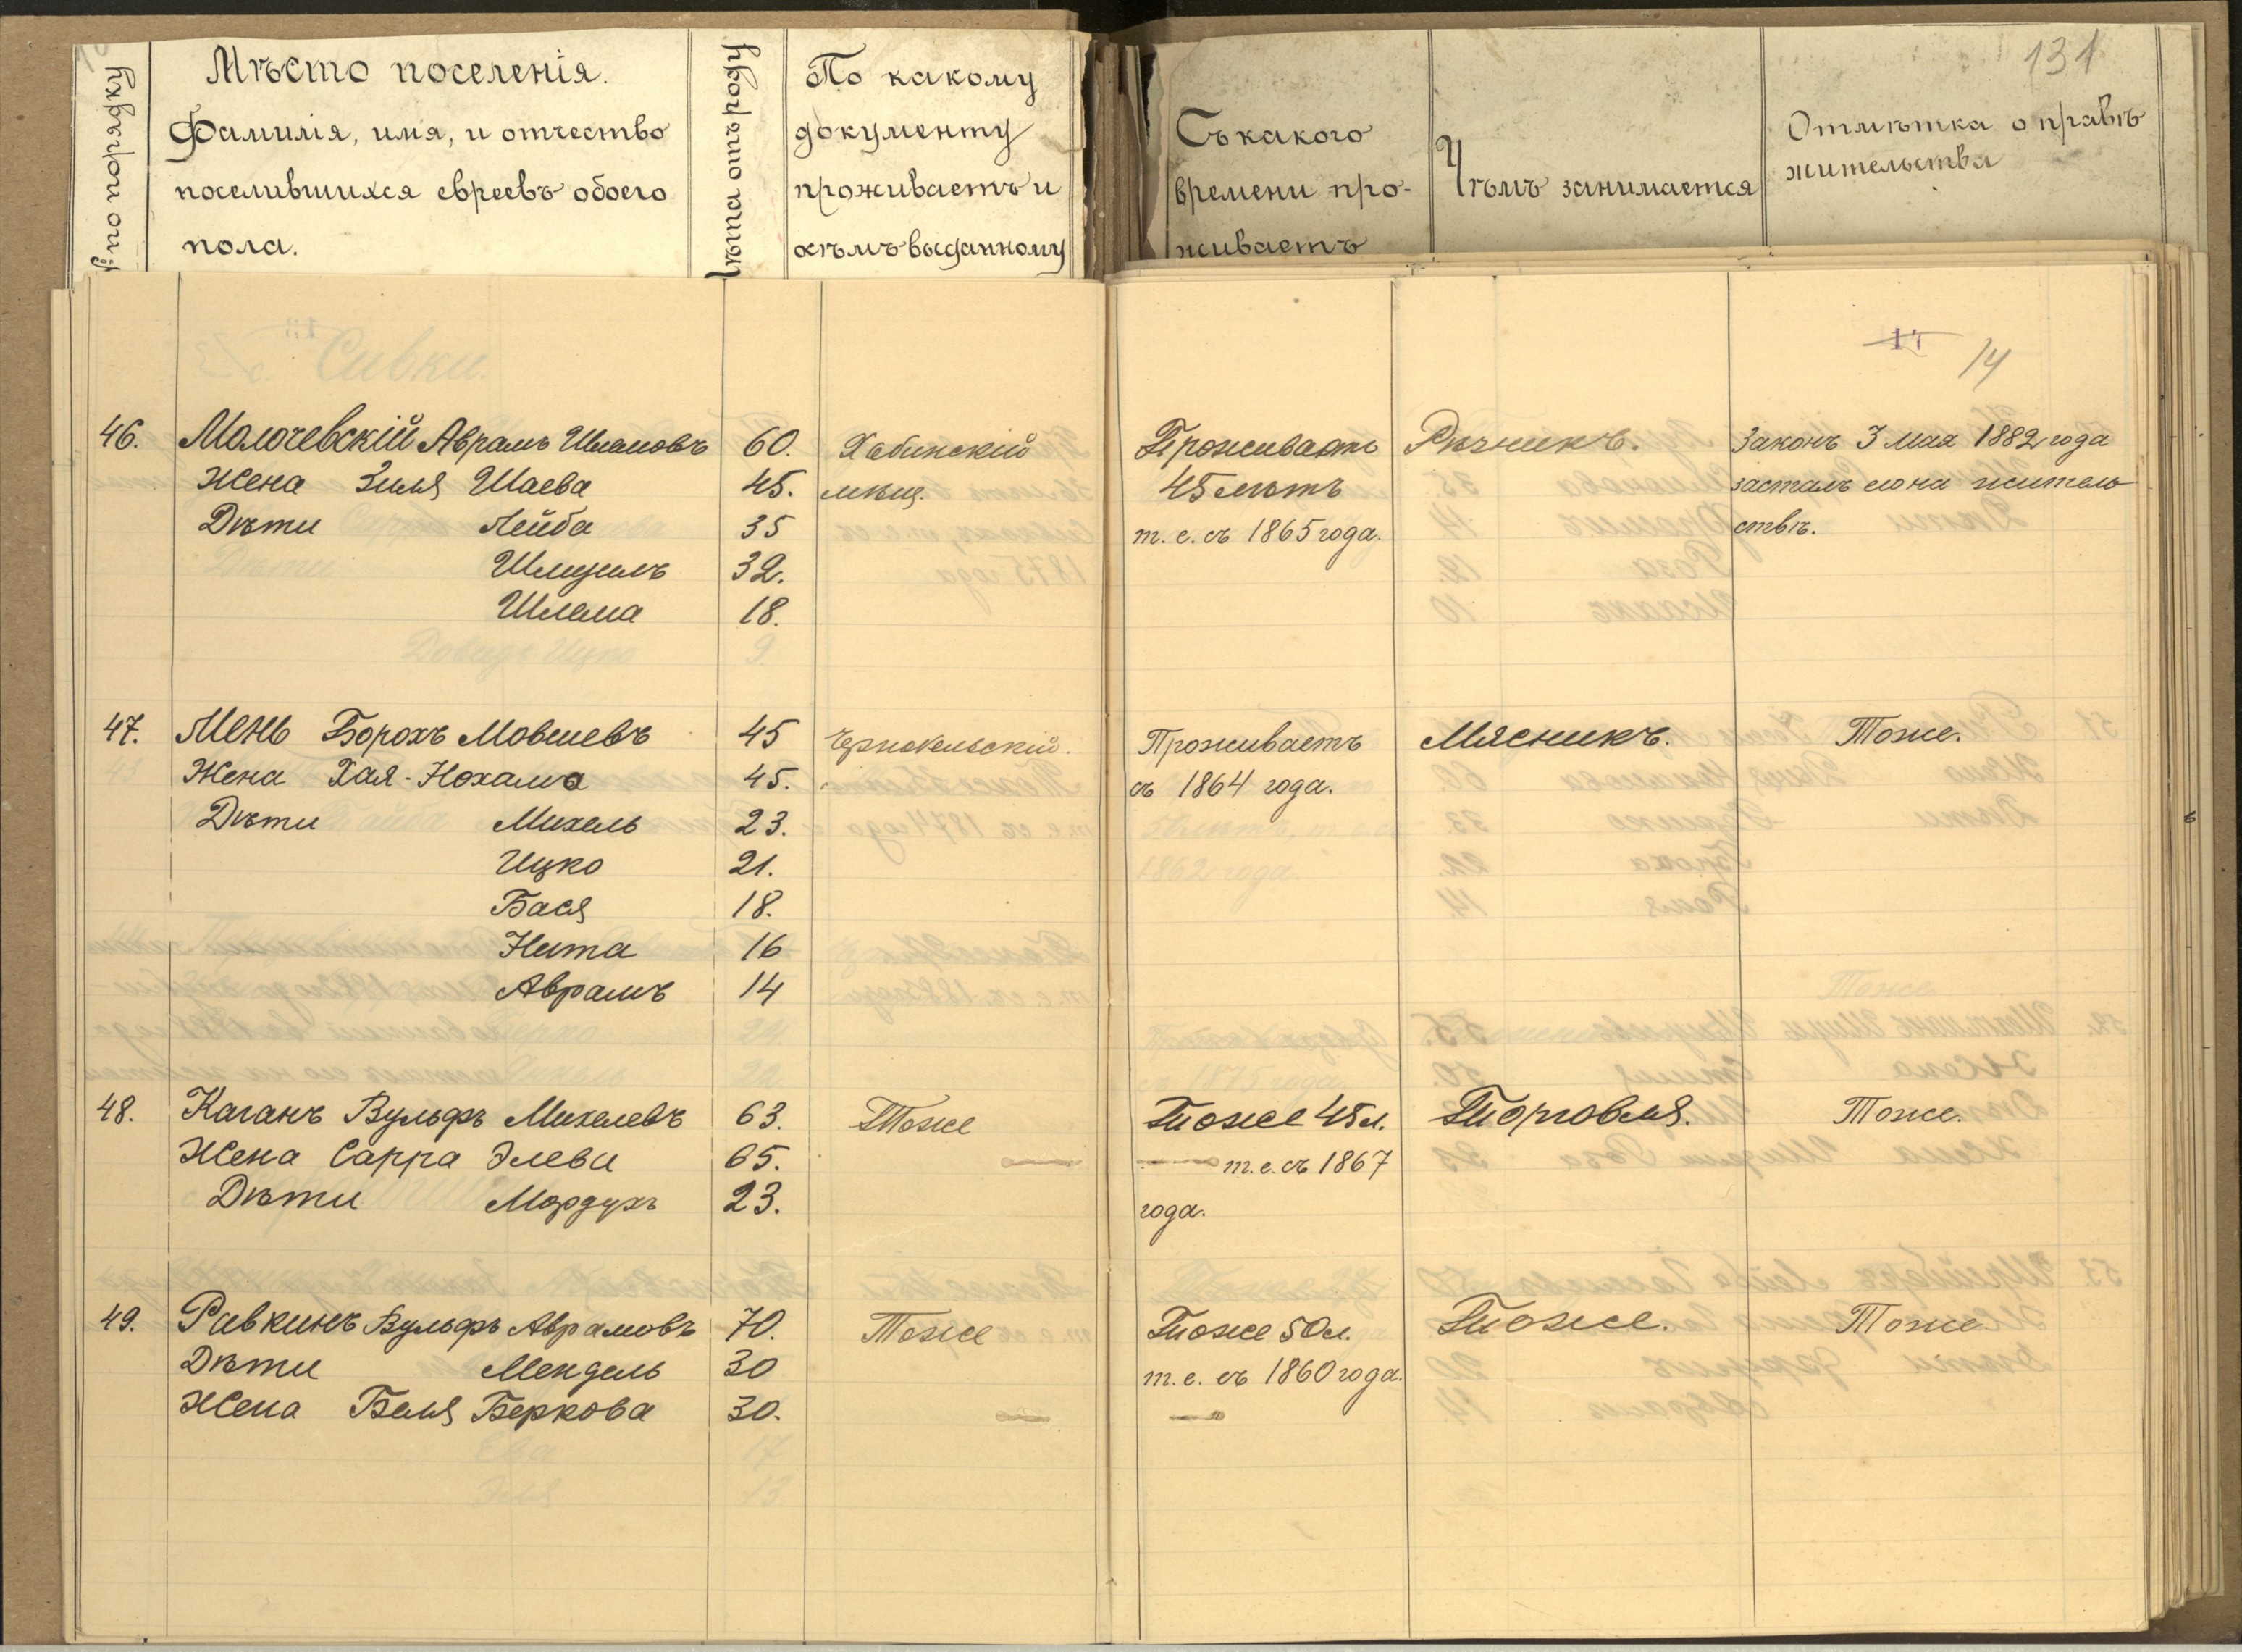 № по порядку
Мѣсто поселенія.
Фамилія, имя, и отчество
поселившихся евреевъ обоего
пола.
Лѣта отъ роду
По какому
документу
проживаетъ и
кѣмъ выданному
Съ какого
времени про-
живаетъ
Чѣмъ занимается
131
Отмѣтка о правѣ
жительства
14
46. Молочевскій Аврамъ Шлемовъ 60. Хабинскій Проживаетъ Рѣзникъ. Законъ 3 мая 1882 года
Жена Зиля Шаева 45. мѣщ. 45 лѣтъ засталъ его на житель
Дѣти Лейба 35 т. е. съ 1865 года. ствѣ.
Шмуилъ 32.
Шлема 18.
47. Мень Борохъ Мовшевъ 45 Чернобельскій. Проживаетъ Мясникъ. Тоже.
Жена Хая-Нохама 45. съ 1864 года.
Дѣти Михель 23.
Ицко 21.
Бася 18.
Нита 16
Аврамъ 14
48. Каганъ Вульфъ Михелевъ 63. Тоже Тоже 45 л. Торговля. Тоже.
Жена Сарра Элева 65. т. е. съ 1867
Дѣти Мордухъ 23. года.
49. Равкинъ Вульфъ Аврамовъ 70. Тоже Тоже 50 л. Тоже. Тоже
Дѣти Мендель 30 т. е. съ 1860 года.
Жена Беля Беркова 30.